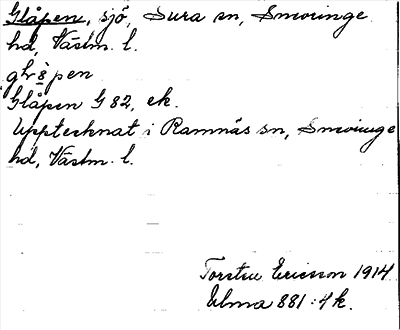 Glåpen, sjö, Sura sn, Snevringe
hd, Västm. l.
glåpen
Glåpen G 82, ek.
Upptecknat i Ramnäs sn, Snevringe
hd, Västm. l.
Torsten Ericsson 1914
Ulma 881:4 k.